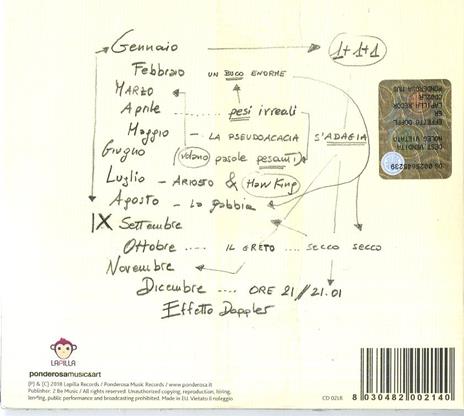 Gennaio 1+1+1
Febbraio UN BUCO ENORME
MARZO
Aprile ..... pesi irreali
Maggio - LA PSEUDOACACIA S'ADAGIA
Giugno (volano parole pesanti)
Luglio - ARIOSTO & Haw King
Agosto - La gabbia
IX Settembre
Ottobre ..... IL GRETO .... SECCO SECCO
Novembre
Dicembre .... ORE 21 // 21.01
Effetto Doppler
LAPILLA
ponderosamusic&art
(P) & (C) 2018 Lapilla Records / Ponderosa Music Records / www.ponderosa.it
Publisher: 2 Be Music / All rights reserved. Unauthorized copying, reproduction, hiring,
lending, public performance and broadcasting prohibited. Made in EU. Vietato il noleggio
CD 0218
8 030482 002140
PONDEROSA MUS
CD02LR
LAPILLA RECOR
SR
EFFETTO DOPPL
NOLEG VIETATO
DEST VENDITA